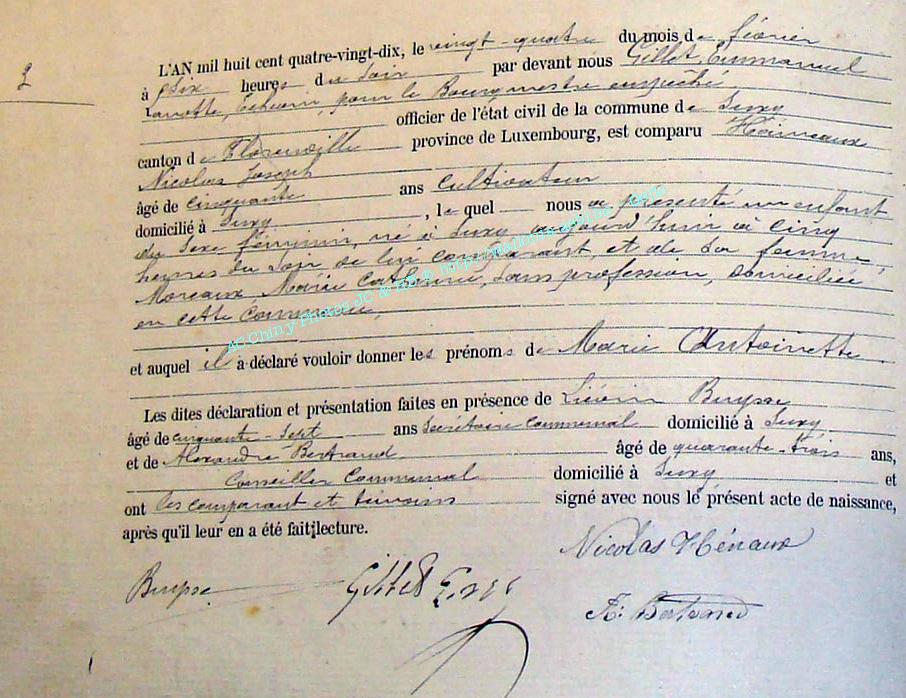 2
L'AN mil huit cent quatre-vingt-dix, le vingt-quatre du mois de février
à six heures du soir par devant nous Gillet, Emmanuel
Échevin, pour le Bourgmestre empêché
officier de l'état civil de la commune de Suxy
canton de Florenville province de Luxembourg, est comparu Hainaux
Nicolas Joseph
âgé de cinquante ans Cultivateur
domicilié à Suxy, lequel nous a présenté un enfant
du sexe féminin, né à Suxy aujourd'hui à cinq
heures du soir de lui comparant, et de sa femme
Moreaux, Marie Catherine, sans profession, domiciliée
en cette commune,
et auquel il a déclaré vouloir donner les prénoms de Marie Antoinette
Les dites déclaration et présentation faites en présence de Liévin Buysse
âgé de cinquante-sept ans Secrétaire communal domicilié à Suxy
et de Alexandre Bertrand âgé de quarante-trois ans,
Conseiller Communal domicilié à Suxy et
ont les comparant et témoins signé avec nous le présent acte de naissance,
après qu'il leur en a été fait lecture.
Nicolas Hénaux
Buysse Gillet
A. Bertrand